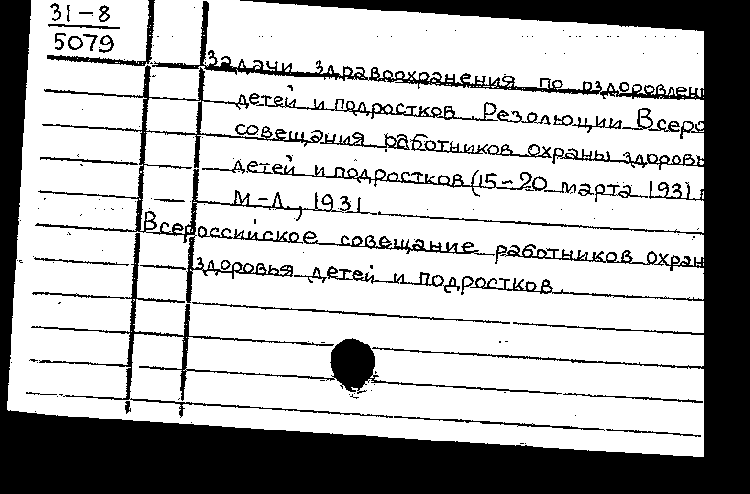 31-8
5079
Задачи здравоохранения по оздоровлен
детей и подростков. Резолюции Всеро
совещания работников охраны здоровь
детей и подростков (15-20 марта 1931 г
М-Л., 1931.
Всероссийское совещание работников охран
здоровья детей и подростков.